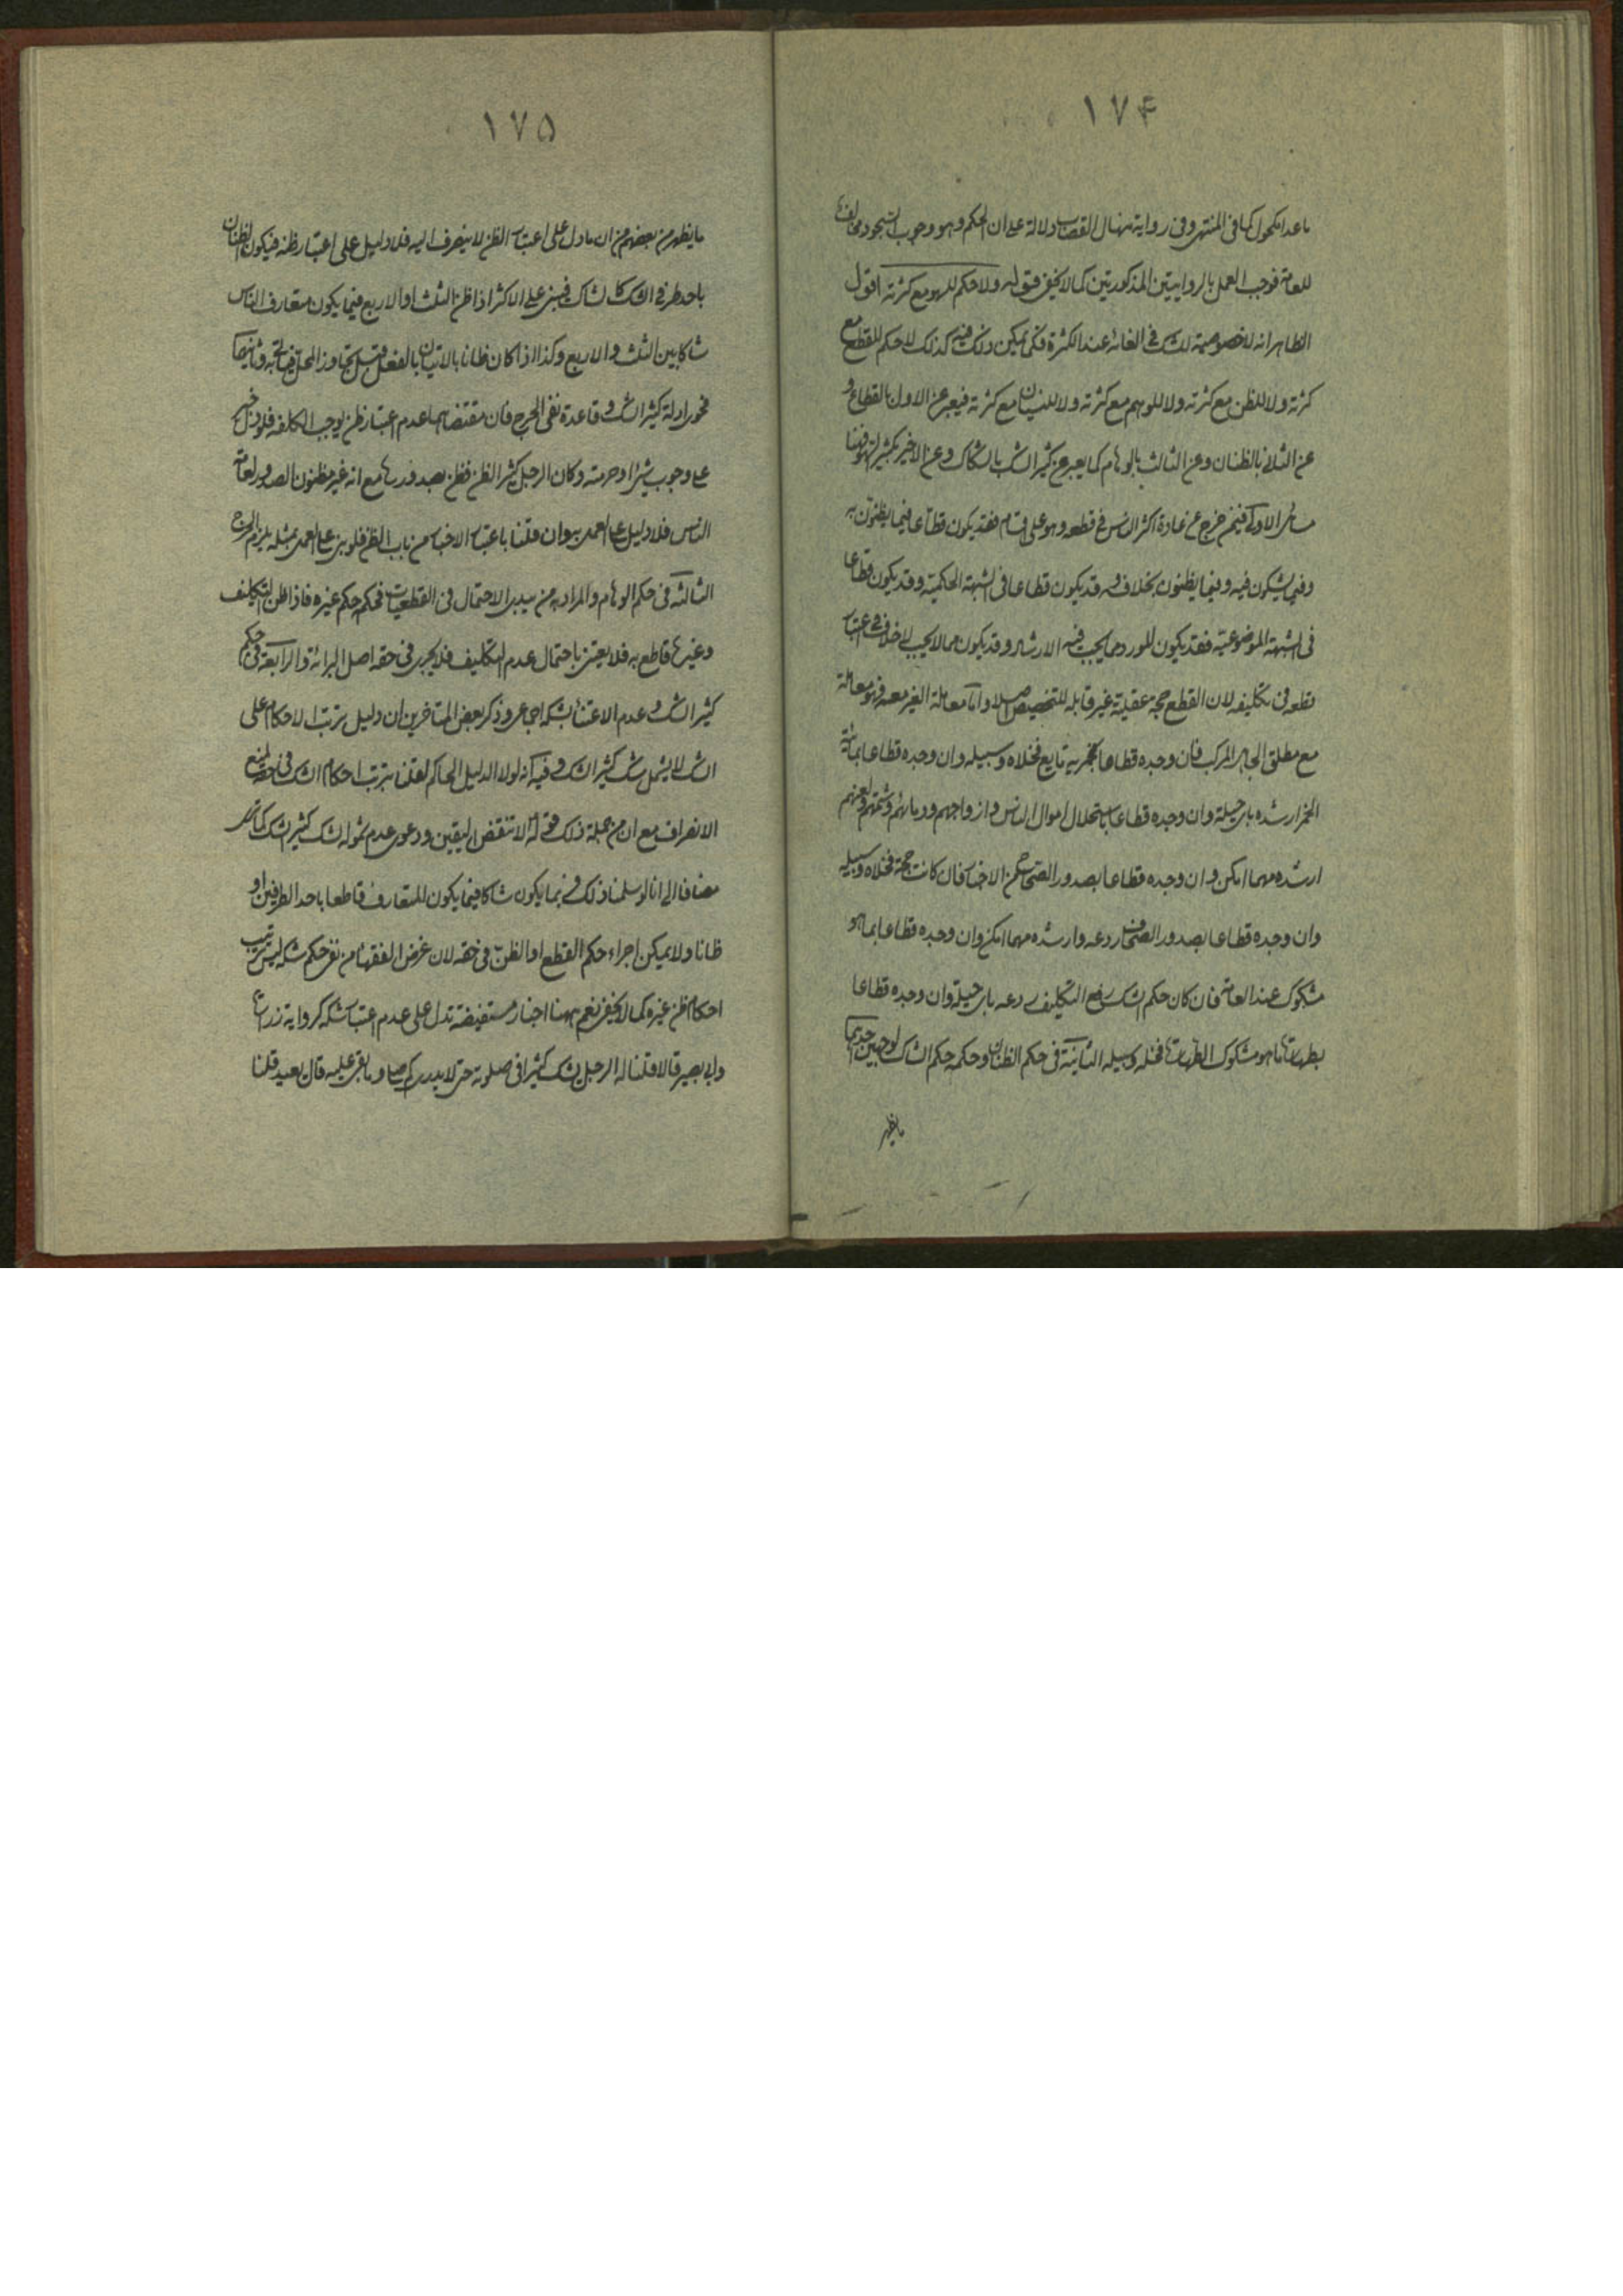 ۱۷۴
ما عدا مكحول كما فى المنتهى وفى رواية منهال القصاب دلالة على ان الحكم وهو وجوب السجود مخالف
للعامة فوجب العمل بالروايتين المذكورتين كما لا يخفى قوله ولا حكم للسهو مع كثرته اقول
الظاهر انه لا خصوصية للشك فى الغائه عند الكثرة فكما يمكن ذلك فيه كذلك لا حكم للقطع مع
كثرته ولا للظن مع كثرته ولا للوهم مع كثرته ولا للنسيان مع كثرته فيعبر عن الاول بالقطاع و
عن الثانى بالظنان وعن الثالث بالوهام كما يعبر عن كثير الشك بالشكاك وعن الاخير بكثير السهو فهنا
مسائل الاولى فيمن خرج عن عادة اكثر الناس فى قطعه وهو على اقسام فقد يكون قطاعا فيما يظنون به
وفيما يشكون فيه وفيما يظنون بخلافه قد يكون قطاعا فى الشبهة الحكمية وقد يكون قطاعا
فى الشبهة الموضوعية فقد يكون المورد مما يجب فيه الارشاد وقد يكون مما لا يجب لا خلاف فى اعتبار
قطعه فى تكليفه لان القطع حجة عقلية غير قابلة للتخصيص اصلا واما معاملة الغير معه فهو معاملة
مع مطلق الجاهل المركب فان وجده قطاعا بخمرية مايع فخلاه وسبيله وان وجده قطاعا بمائية
الخمر ارشده باى حيلة وان وجده قطاعا باستحلال اموال الناس وازواجهم ودمائهم وشتمهم ولعنهم
ارشده مهما امكن وان وجده قطاعا بصدور الصحاح من الاخبار فان كانت حجة فخلاه وسبيله
وان وجده قطاعا بصدور الضعاف ردعه وارشده مهما امكن وان وجده قطاعا بما هو
مشكوك عند العامة فان كان حكم الشك رفع التكليف ردعه باى حيلة وان وجده قطاعا
بطهارة ما هو مشكوك الطهارة فخله وسبيله الثانية فى حكم الظنان وحكمه حكم الشاك لوجهين احدهما
ما يظهر
۱۷۵
ما يظهر من بعضهم من ان ما دل على اعتبار الظن لا ينصرف اليه فلا دليل على اعتبار ظنه فيكون الظنان
باحد طرفى الشك كالشاك فيبنى على الاكثر اذا ظن الثلث او الاربع فيما يكون متعارف الناس
شاكا بين الثلث والاربع وكذا اذا كان ظانا بالاتيان بالفعل قبل تجاوز المحل وثانيهما
فحوى ادلة كثير الشك وقاعدة نفى الحرج فان مقتضاهما عدم اعتبار ظن يوجب الكلفة فلو دل خبر
على وجوب شىء او حرمته وكان الرجل كثير الظن فظن بصدورها مع انه غير مظنون الصدور لعامة
الناس فلا دليل على العمل به وان قلنا باعتبار الاخبار من باب الظن فلو بنى على العمل بمثله يلزم الحرج
الثالثة فى حكم الوهام والمراد به من يبدى الاحتمال فى القطعيات فحكمه حكم غيره فاذا ظن التكليف
وغيرها قاطع به فلا يعتنى باحتمال عدم التكليف فلا يجرى فى حقه اصل البرائة والرابعة فى حكم
كثير الشك وعدم الاعتناء بشكه اجماعى وذكر بعض المتاخرين ان دليل ترتب الاحكام على
الشك لا يشمل شك كثير الشك وفيه انه لولا الدليل الحاكم لقلنا بترتب احكام الشك فى حقه لمنع
الانصراف مع ان من جملة ذلك قوله لا تنقض اليقين ودعوى عدم شموله لشك كثير الشك كما ترى
مضافا الى انا لو سلمنا ذلك فربما يكون شاكا فيما يكون المتعارف قاطعا باحد الطرفين او
ظانا ولا يمكن اجراء حكم القطع او الظن فى حقه لان غرض الفقهاء من نفى حكم شكه ليس ترتيب
احكام ظن غيره كما لا يخفى نعم ههنا اخبار مستفيضة تدل على عدم اعتبار شكه كرواية زرارة
وابى بصير قالا قلنا له الرجل يشك كثيرا فى صلوته حتى لا يدرى كم صلى وما بقى عليه قال يعيد قلنا